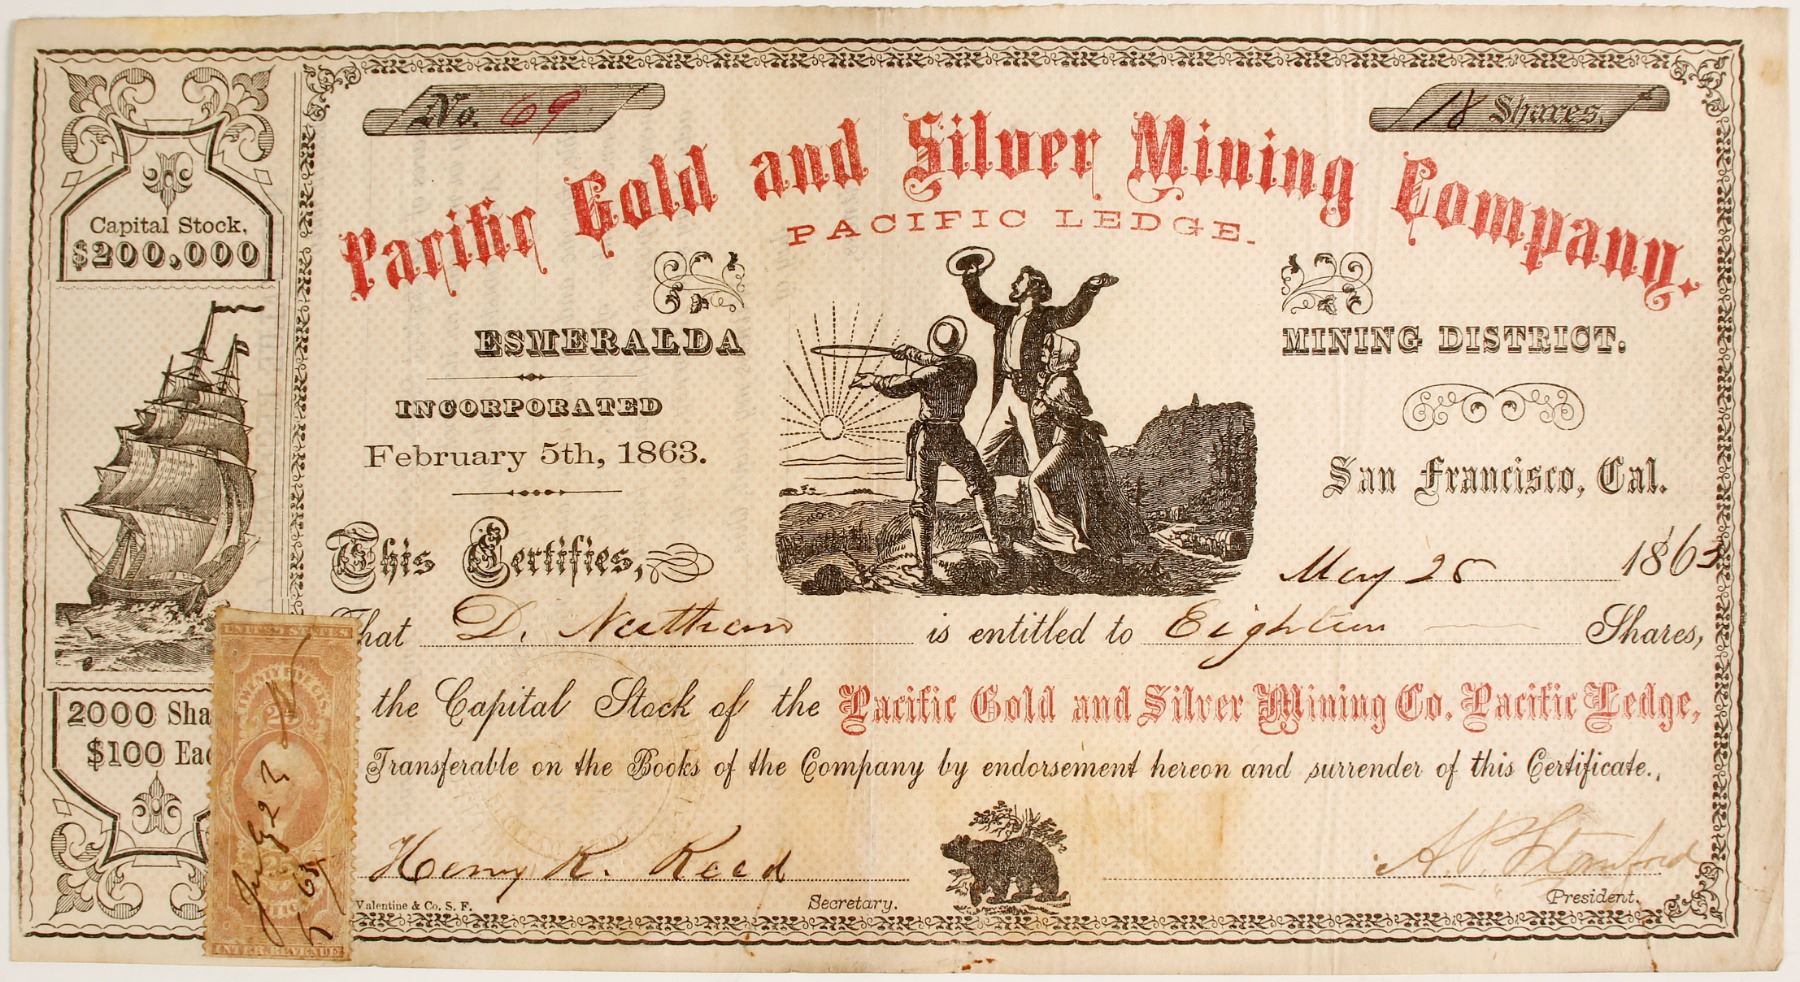 No. 69
18 Shares.
Pacific Gold and Silver Mining Company.
PACIFIC LEDGE.
Capital Stock,
$200,000
ESMERALDA
MINING DISTRICT.
INCORPORATED
February 5th, 1863.
San Francisco, Cal.
This Certifies,
May 25 1863
That D. Nathan is entitled to Eighteen Shares,
the Capital Stock of the Pacific Gold and Silver Mining Co. Pacific Ledge,
Transferable on the Books of the Company by endorsement hereon and surrender of this Certificate.,
2000 Sha
$100 Eac
UNITED STATES
25
25
INTER. REVENUE
Henry R. Reed
Secretary.
A P Stanford
President.
Valentine & Co. S. F.